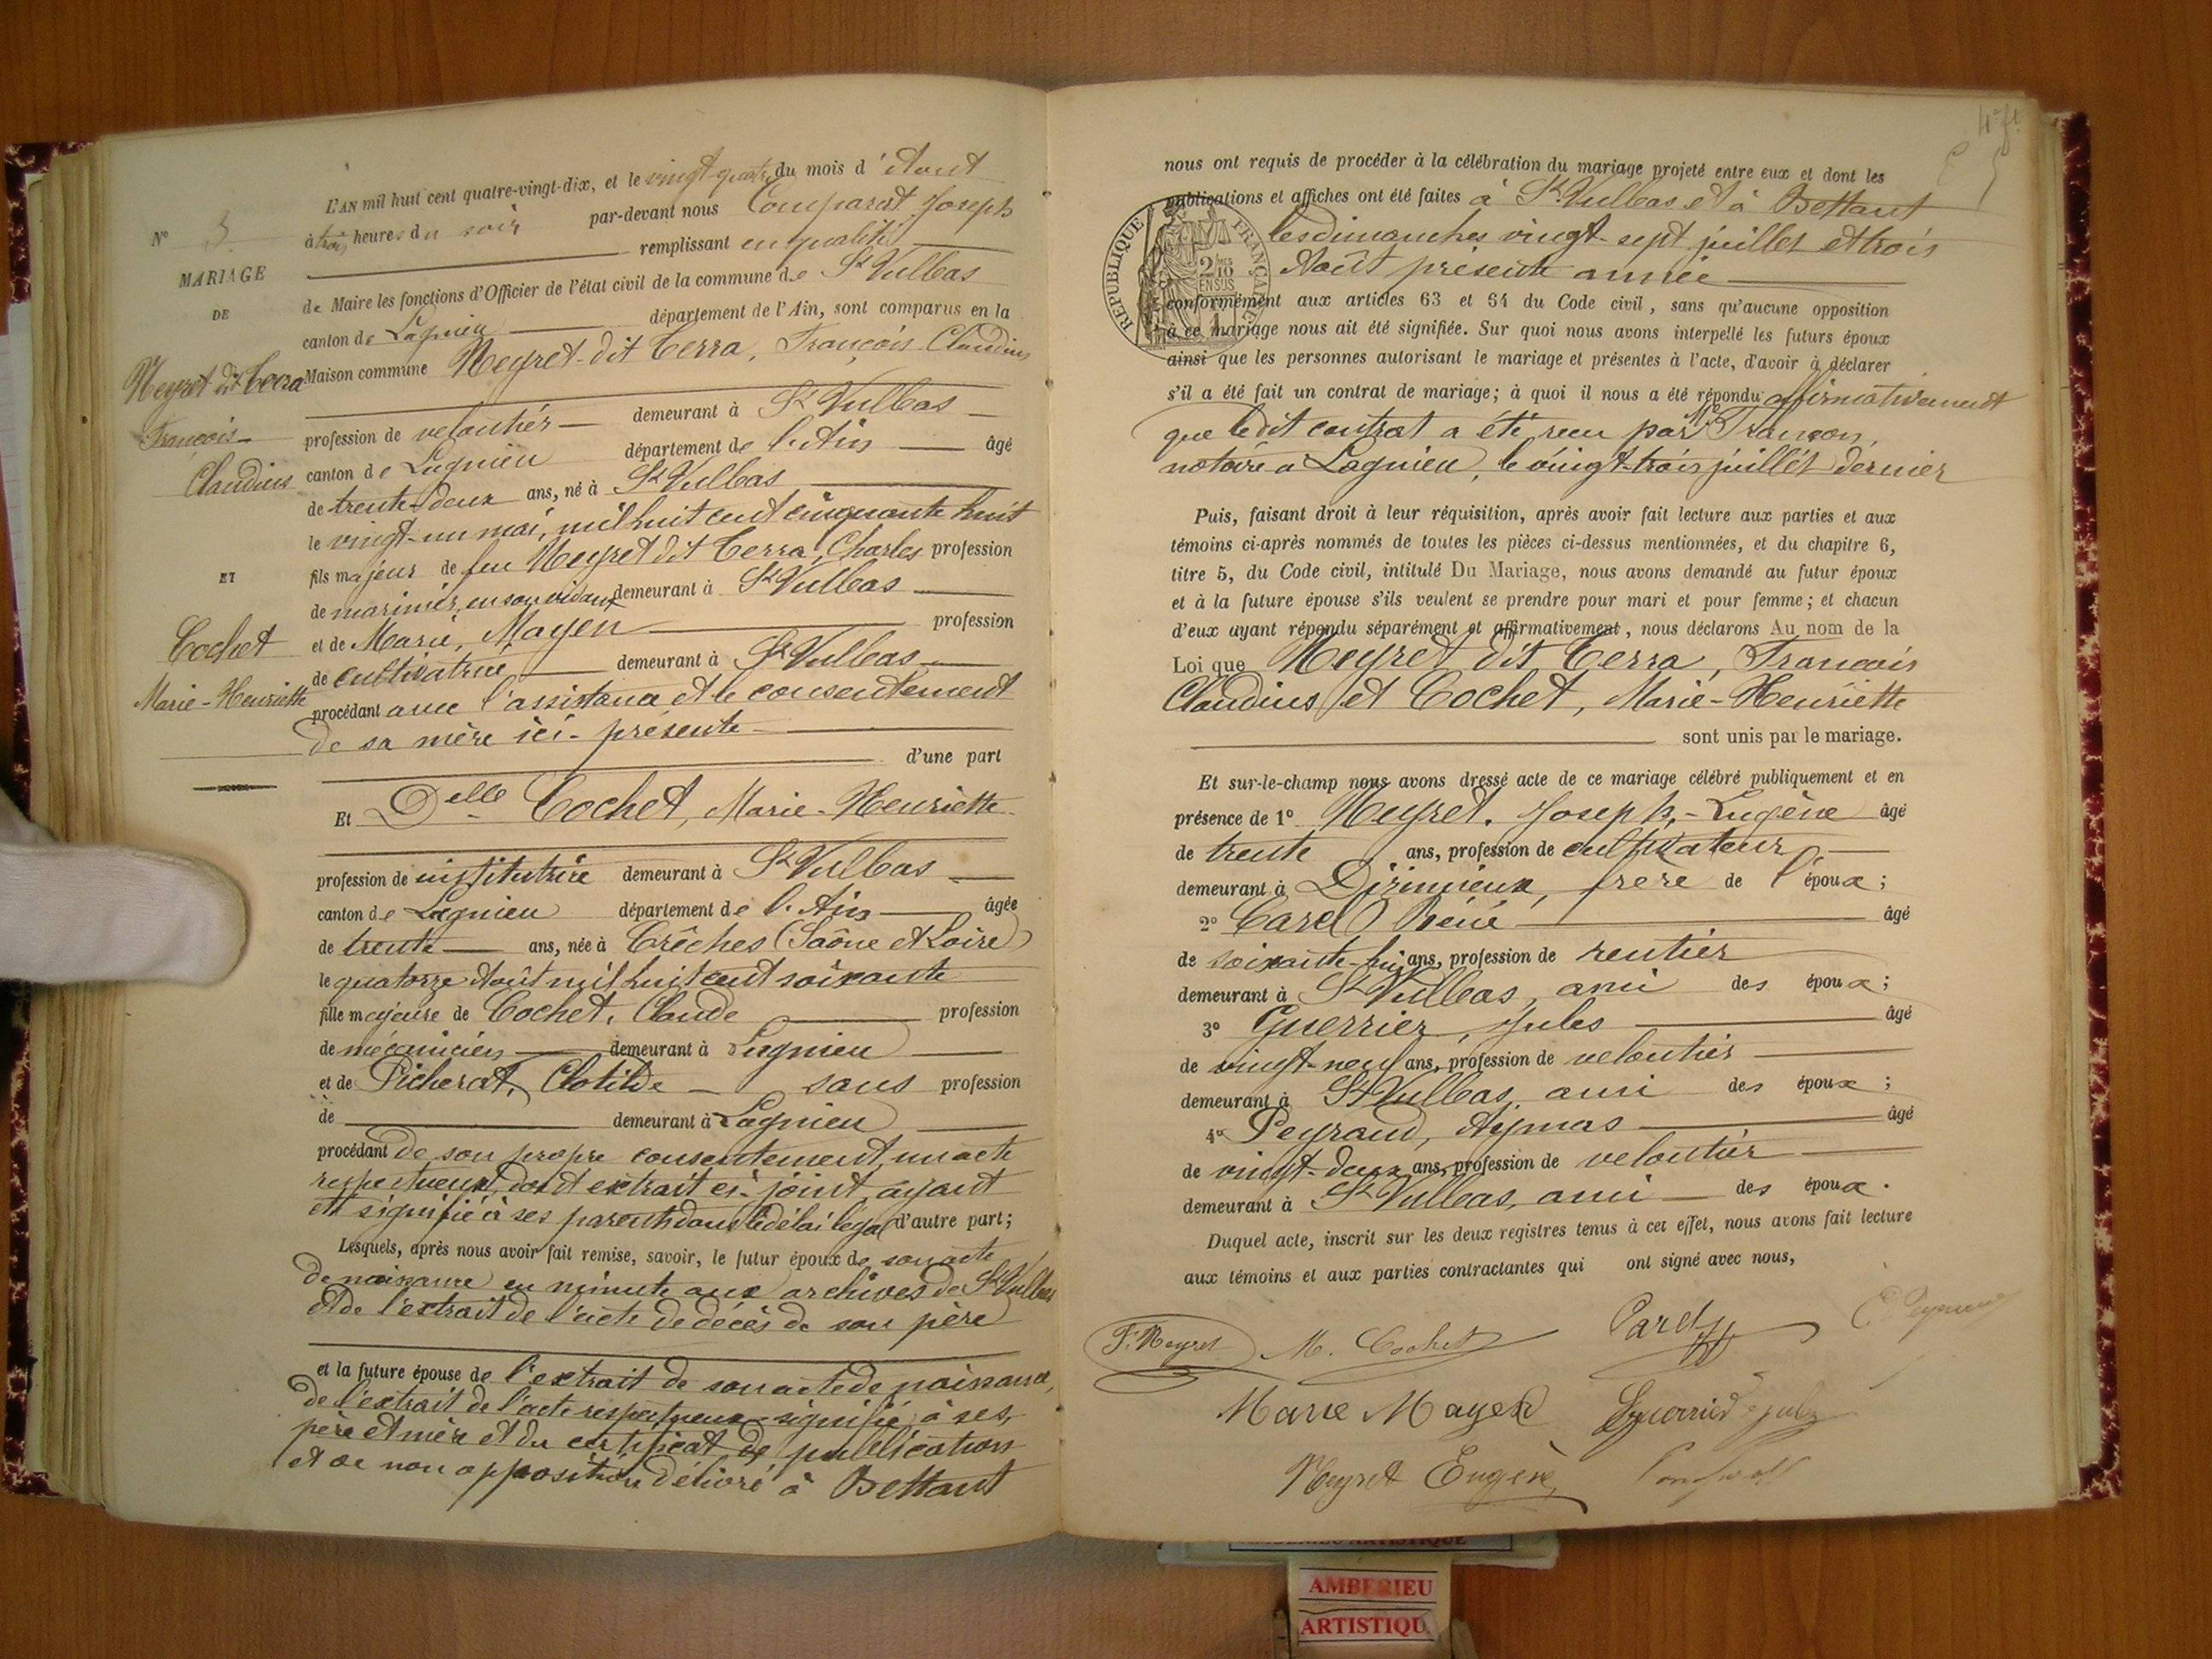 N° 3
MARIAGE
DE
Neyret dit Terra
François
Claudius
ET
Cochet
Marie-Henriette
L'AN mil huit cent quatre-vingt-dix, et le vingt quatre du mois d'Aout
à trois heures du soir par-devant nous Comparat Joseph
remplissant en qualité
de Maire les fonctions d'Officier de l'état civil de la commune de St Vulbas
canton de Lagnieu département de l'Ain, sont comparus en la
Maison commune Neyret dit Terra, François Claudius
profession de veloutier demeurant à St Vulbas
canton de Lagnieu département de l'Ain âgé
de trente deux ans, né à St Vulbas
le vingt-un mai, mil huit cent cinquante huit
fils majeur de feu Neyret dit Terra, Charles profession
de marinier, en son vivant demeurant à St Vulbas
et de Marie, Mayen profession
de cultivatrice demeurant à St Vulbas
procédant avec l'assistance et le consentement
de sa mère ici-présente
d'une part
Et Delle Cochet, Marie-Henriette
profession de institutrice demeurant à St Vulbas
canton de Lagnieu département de l'Ain âgée
de trente ans, née à Crêches (Saône et Loire)
le quatorze Août mil huit cent soixante
fille majeure de Cochet, Claude profession
de mécanicien demeurant à Lagnieu
et de Picherat, Clotilde sans profession
de demeurant à Lagnieu
procédant de son propre consentement, un acte
respectueux, dont extrait ci-joint, ayant
été signifié à ses parents dans le délai légal d'autre part;
Lesquels, après nous avoir fait remise, savoir, le futur époux de son acte
de naissance en minute aux archives de St Vulbas
et de l'extrait de l'acte de décès de son père
et la future épouse de l'extrait de son acte de naissance,
de l'extrait de l'acte respectueux signifié à ses
père et mère et du certificat de publication
et de non opposition délivré à Bettant
nous ont requis de procéder à la célébration du mariage projeté entre eux et dont les
publications et affiches ont été faites à St Vulbas et à Bettant
les dimanches vingt-sept juillet et trois
Août présente année
RÉPUBLIQUE FRANÇAISE
conformément aux articles 63 et 64 du Code civil, sans qu'aucune opposition
à ce mariage nous ait été signifiée. Sur quoi nous avons interpellé les futurs époux
ainsi que les personnes autorisant le mariage et présentes à l'acte, d'avoir à déclarer
s'il a été fait un contrat de mariage; à quoi il nous a été répondu affirmativement
que le dit contrat a été reçu par Me Trançon,
notaire à Lagnieu, le vingt-trois juillet dernier
Puis, faisant droit à leur réquisition, après avoir fait lecture aux parties et aux
témoins ci-après nommés de toutes les pièces ci-dessus mentionnées, et du chapitre 6,
titre 5, du Code civil, intitulé Du Mariage, nous avons demandé au futur époux
et à la future épouse s'ils veulent se prendre pour mari et pour femme; et chacun
d'eux ayant répondu séparément et affirmativement, nous déclarons Au nom de la
Loi que Neyret dit Terra, François
Claudius et Cochet, Marie-Henriette
sont unis par le mariage.
Et sur-le-champ nous avons dressé acte de ce mariage célébré publiquement et en
présence de 1° Neyret, Joseph-Eugène âgé
de trente ans, profession de cultivateur
demeurant à Dizimieux, frère de l'époux;
2° Caret René âgé
de soixante-huit ans, profession de rentier
demeurant à St Vulbas, ami des époux;
3° Guerrier, Jules âgé
de vingt-neuf ans, profession de veloutier
demeurant à St Vulbas, ami des époux;
4° Peyraud, Aymas âgé
de vingt-deux ans, profession de veloutier
demeurant à St Vulbas, ami des époux.
Duquel acte, inscrit sur les deux registres tenus à cet effet, nous avons fait lecture
aux témoins et aux parties contractantes qui ont signé avec nous,
F. Neyret M. Cochet Caret
Marie Mayen Guerrier Jules
Neyret Eugène
AMBERIEU
ARTISTIQU